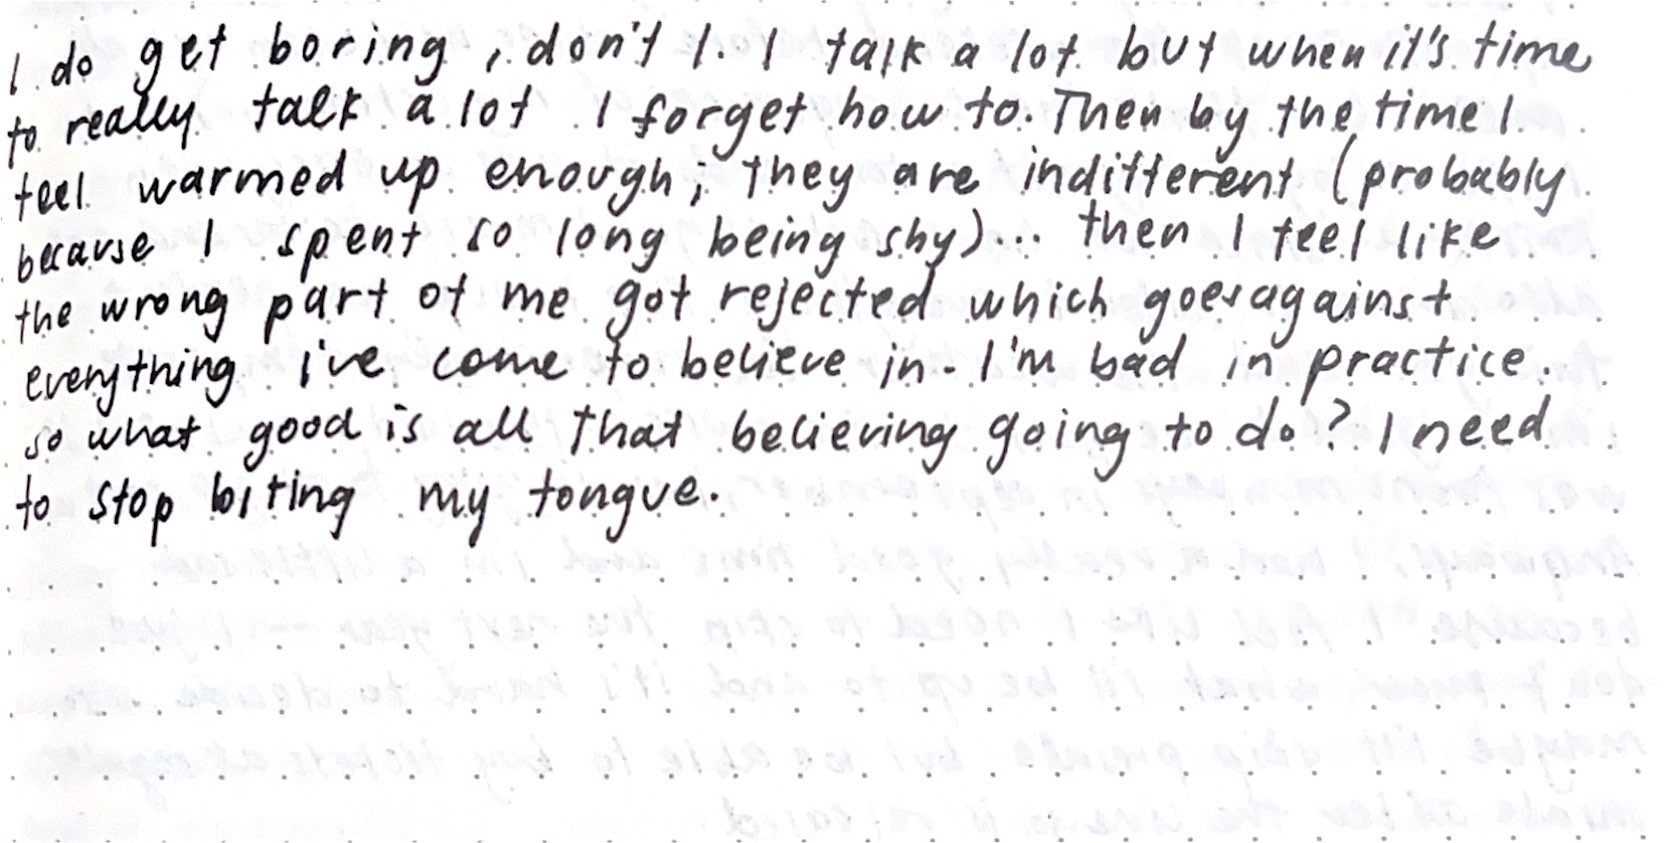 I do get boring, don't I. I talk a lot but when it's time
to really talk a lot I forget how to. Then by the time I
feel warmed up enough; they are indifferent (probably
because I spent so long being shy)... then I feel like
the wrong part of me got rejected which goes against
everything i've come to believe in. I'm bad in practice.
so what good is all that believing going to do? I need
to stop biting my tongue.